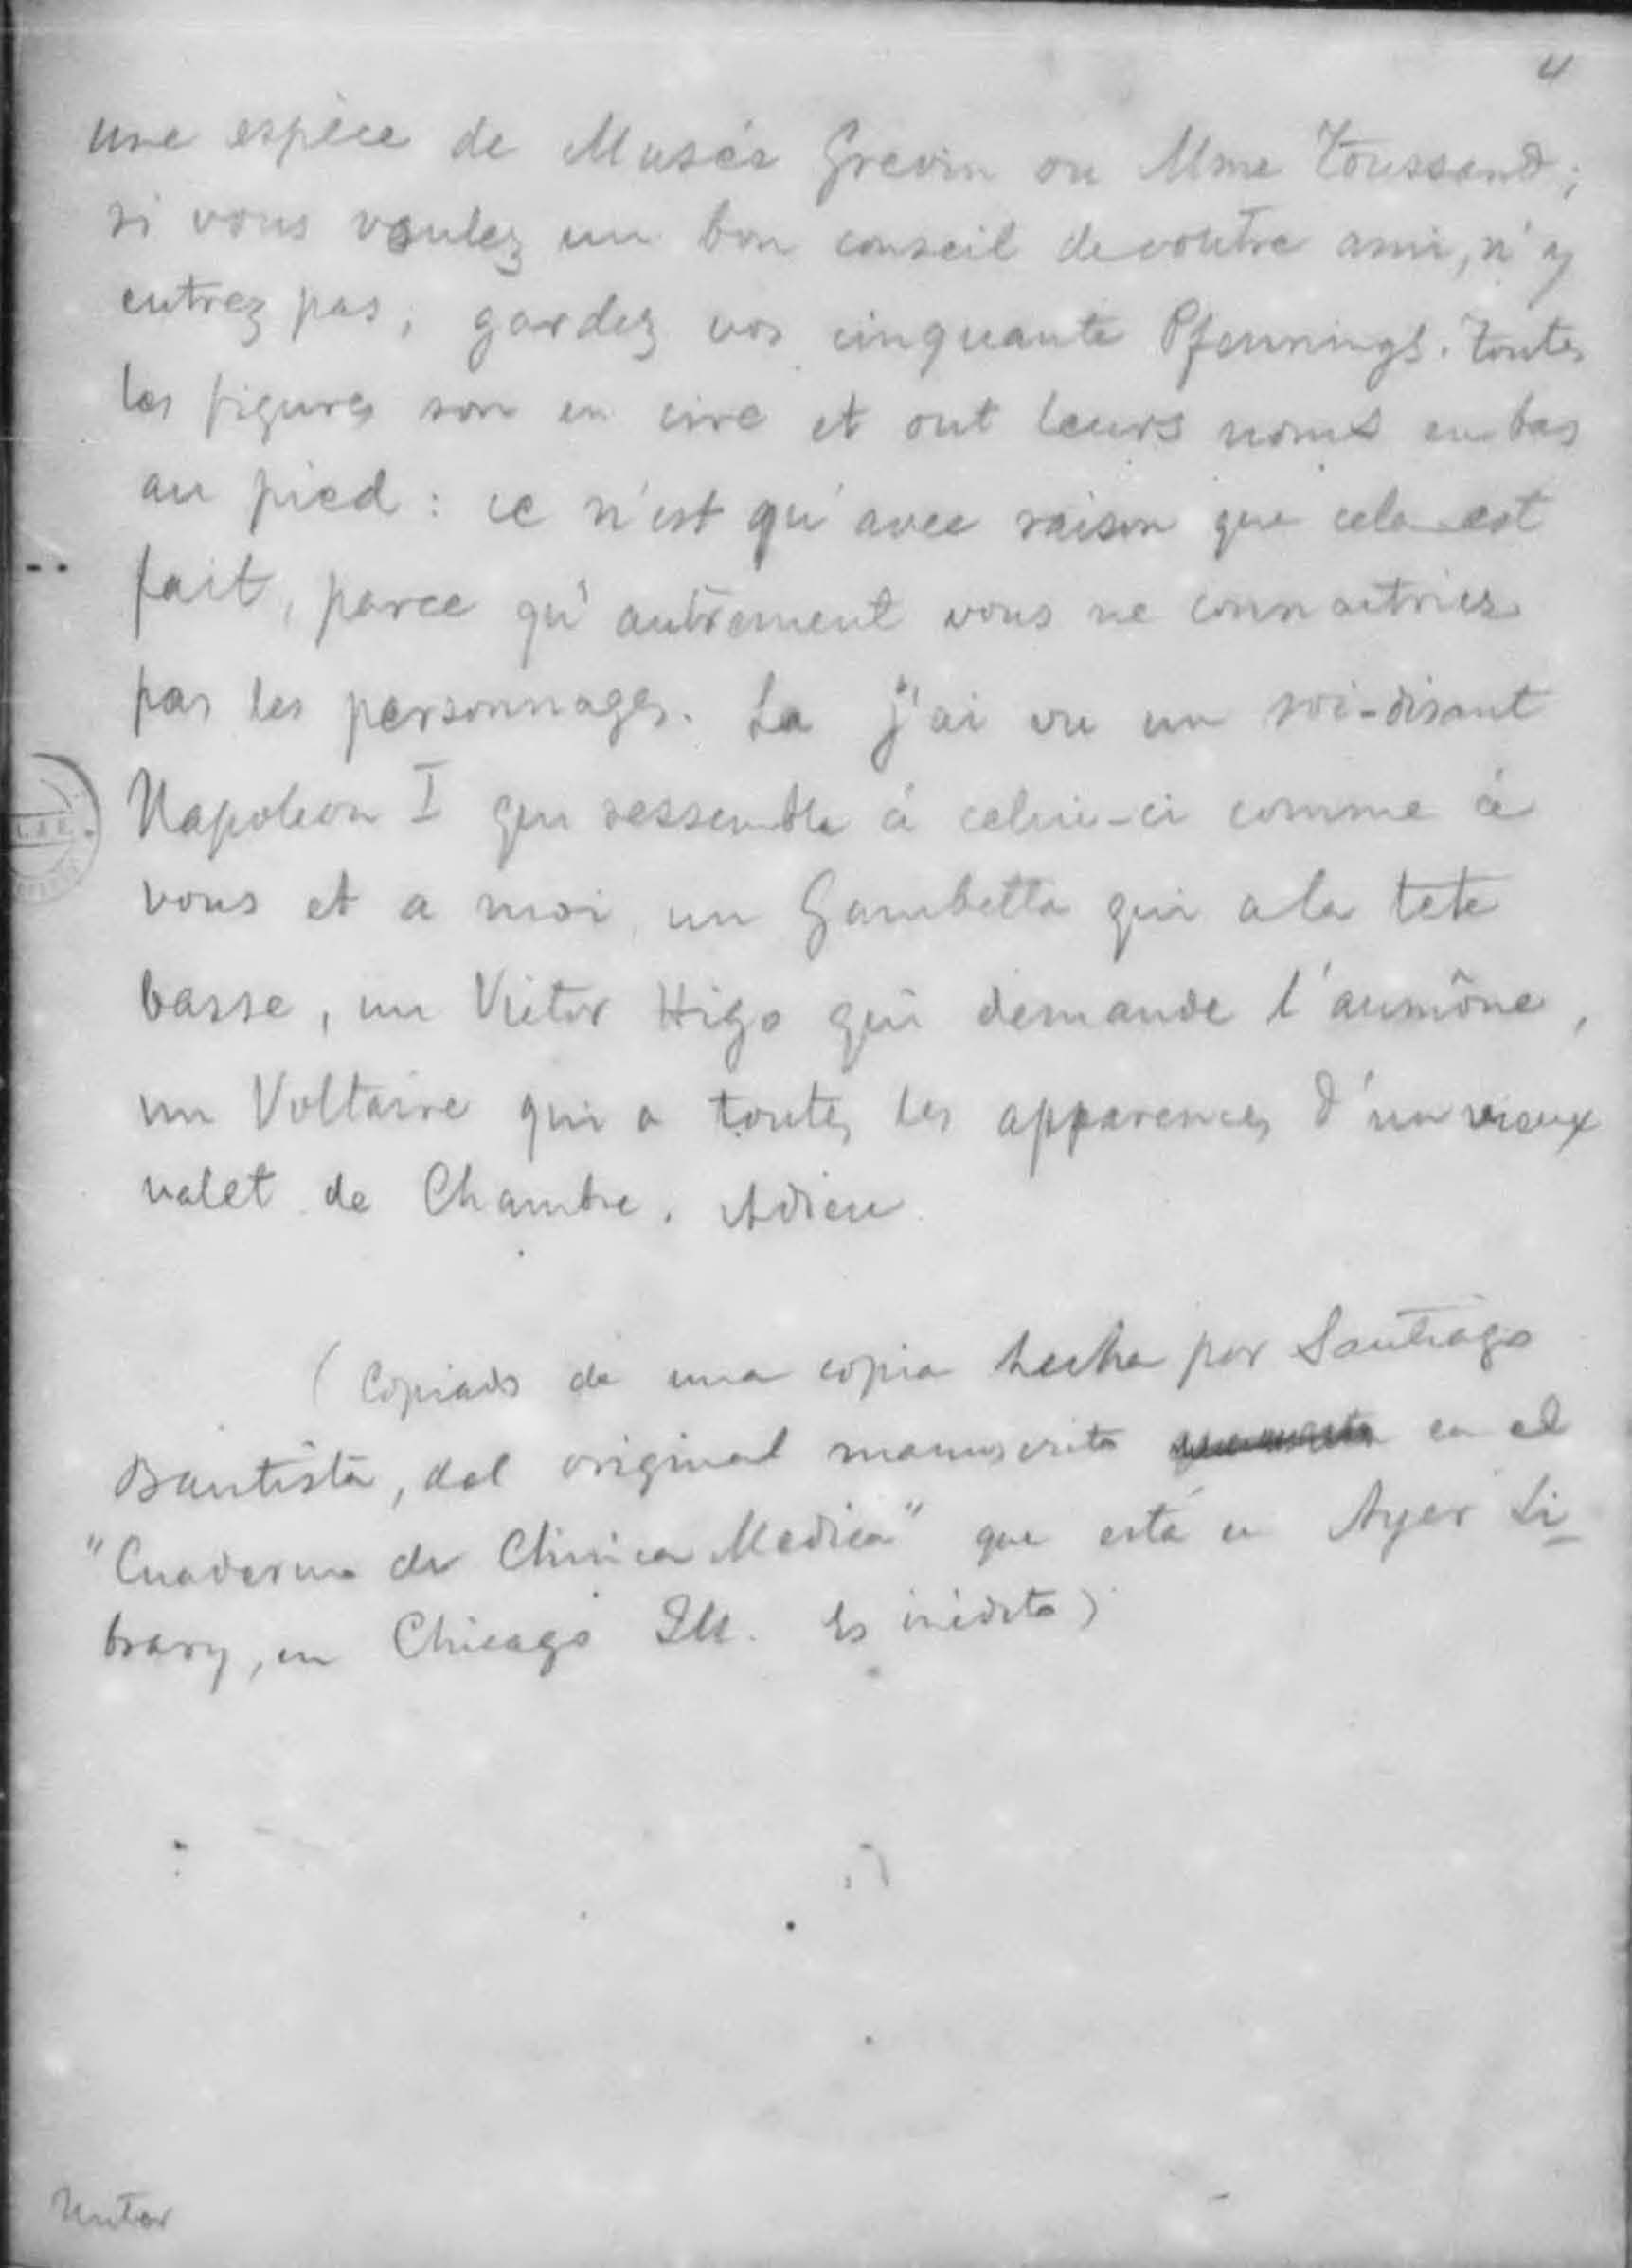 4
une espèce de Musée Grevin ou Mme Toussand;
si vous voulez un bon conseil de voutre ami, n'y
entrez pas, gardez vos cinquante Pfennings. Toutes
les figures son en cire et ont leurs noms en bas
au pied: ce n'est qu'avec raison que cela est
fait, parce qu'autrement vous ne connaitriez
pas les personnages. La j'ai vu un soi-disant
Napoleon I qui ressemble á celui-ci comme á
vous et a moi, un Gambetta qui a la tete
basse, un Victor Higo qui demande l'aumône,
un Voltaire qui a toutes les apparences d'un vieux
valet de Chambre. Adieu
(Copiado de una copia hecha por Santiago
Bautista, del original manuscrito en el
"Cuaderno de Clinica Medica" que está en Ayer Li-
brary, en Chicago Ill. Es inédito)